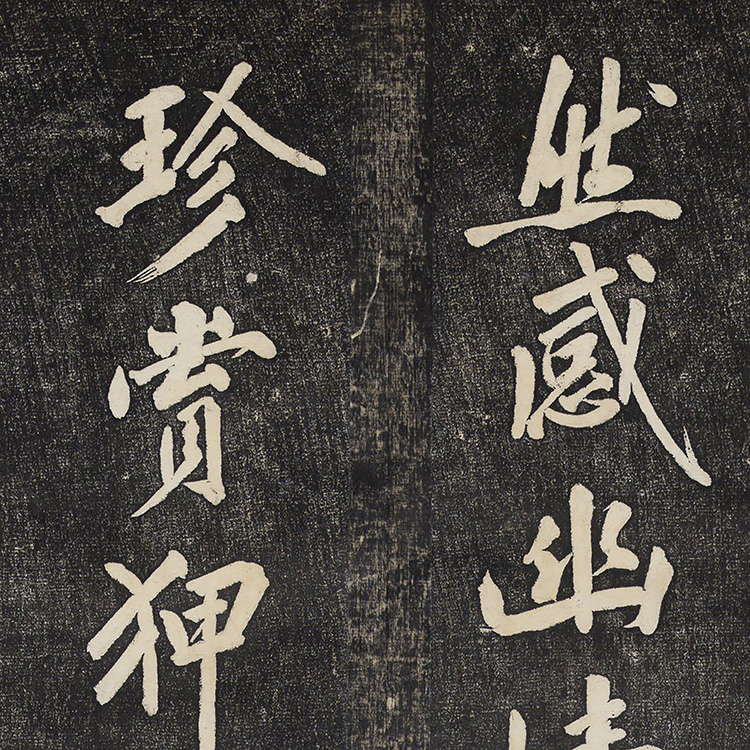 然感幽
珍賞狎